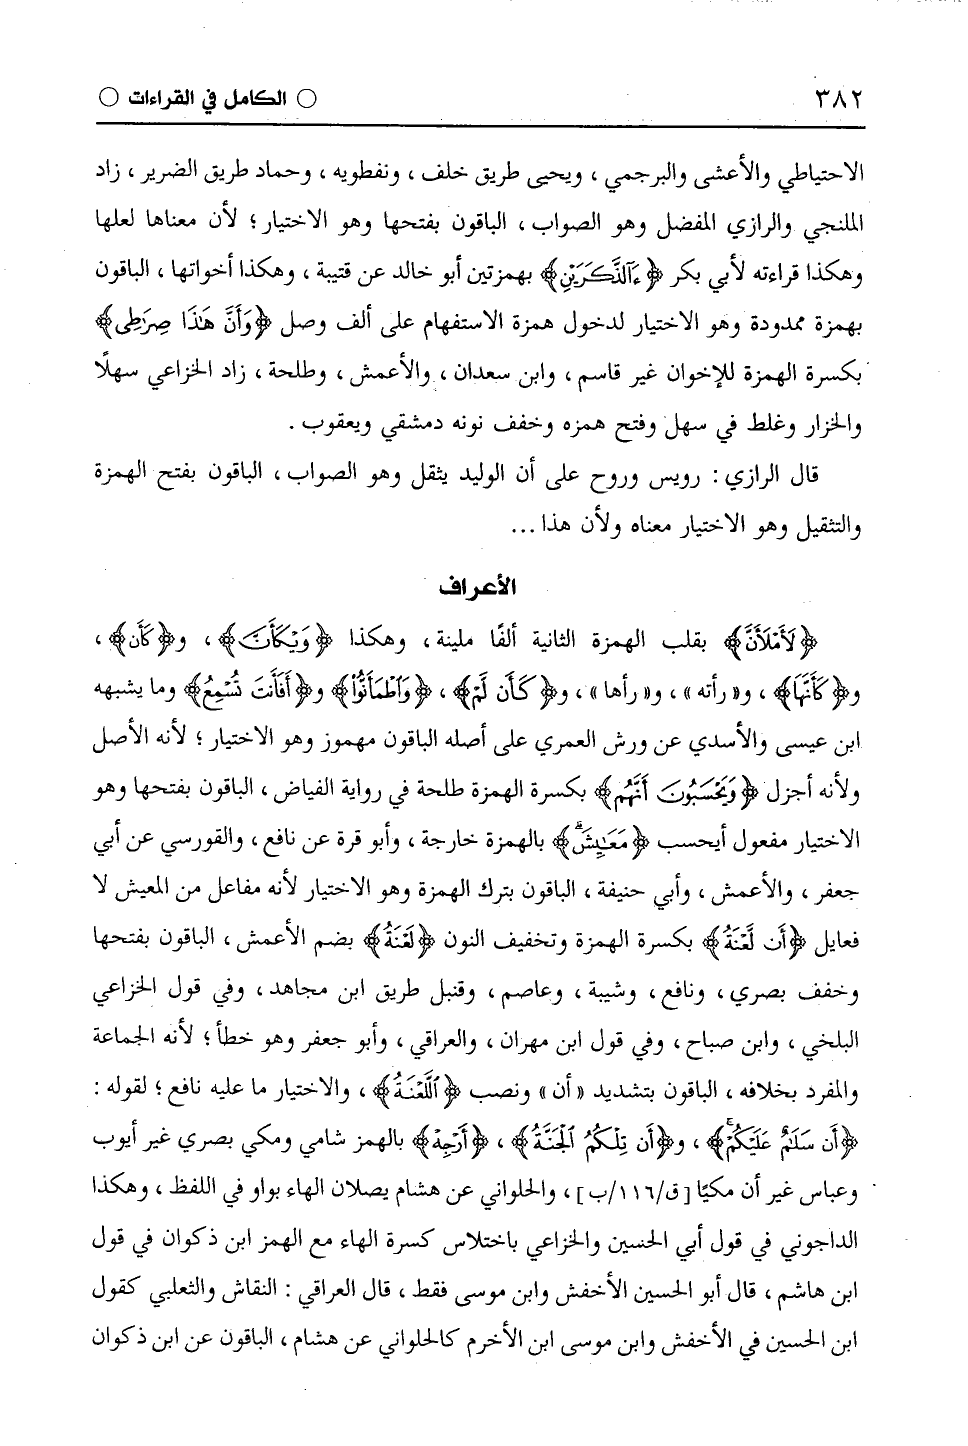 ٣٨٢ ○ الكامل في القراءات ○
الاحتياطي والأعشى والبرجمي ، ويحيى طريق خلف ، ونفطويه ، وحماد طريق الضرير ، زاد
الملنجي والرازي المفضل وهو الصواب ، الباقون بفتحها وهو الاختيار ؛ لأن معناها لعلها
وهكذا قراءته لأبي بكر ﴿ءَآلذَّكَرَيْنِ﴾ بهمزتين أبو خالد عن قتيبة ، وهكذا أخواتها ، الباقون
بهمزة ممدودة وهو الاختيار لدخول همزة الاستفهام على ألف وصل ﴿وَأَنَّ هَٰذَا صِرَٰطِى﴾
بكسرة الهمزة للإخوان غير قاسم ، وابن سعدان ، والأعمش ، وطلحة ، زاد الخزاعي سهلًا
والخزار وغلط في سهل وفتح همزه وخفف نونه دمشقي ويعقوب .
قال الرازي : رويس وروح على أن الوليد يثقل وهو الصواب ، الباقون بفتح الهمزة
والتثقيل وهو الاختيار معناه ولأن هذا ...
الأعراف
﴿لَأَمْلَأَنَّ﴾ بقلب الهمزة الثانية ألفًا ملينة ، وهكذا ﴿وَيْكَأَنَّ﴾ ، و﴿كَأَن﴾ ،
و﴿كَأَنَّهَا﴾ ، و« رأته » ، و« رأها » ، و﴿كَأَن لَّمْ﴾ ، ﴿وَٱطْمَأَنُّوا۟﴾ و﴿أَفَأَنتَ تُسْمِعُ﴾ وما يشبهه
ابن عيسى والأسدي عن ورش العمري على أصله الباقون مهموز وهو الاختيار ؛ لأنه الأصل
ولأنه أجزل ﴿وَيَحْسَبُونَ أَنَّهُم﴾ بكسرة الهمزة طلحة في رواية الفياض ، الباقون بفتحها وهو
الاختيار مفعول أيحسب ﴿مَعَٰيِشَ ۗ﴾ بالهمزة خارجة ، وأبو قرة عن نافع ، والقورسي عن أبي
جعفر ، والأعمش ، وأبي حنيفة ، الباقون بترك الهمزة وهو الاختيار لأنه مفاعل من المعيش لا
فعايل ﴿أَن لَّعْنَةُ﴾ بكسرة الهمزة وتخفيف النون ﴿لَعْنَةُ﴾ بضم الأعمش ، الباقون بفتحها
وخفف بصري ، ونافع ، وشيبة ، وعاصم ، وقنبل طريق ابن مجاهد ، وفي قول الخزاعي
البلخي ، وابن صباح ، وفي قول ابن مهران ، والعراقي ، وأبو جعفر وهو خطأ ؛ لأنه الجماعة
والمفرد بخلافه ، الباقون بتشديد « أن » ونصب ﴿ٱللَّعْنَةُ﴾ ، والاختيار ما عليه نافع ؛ لقوله :
﴿أَن سَلَٰمٌ عَلَيْكُمْ ۚ﴾ ، و﴿أَن تِلْكُمُ ٱلْجَنَّةُ﴾ ، ﴿أَرْجِهْ﴾ بالهمز شامي ومكي بصري غير أيوب
وعباس غير أن مكيًا [ ق/١١٦/ب ] ، والحلواني عن هشام يصلان الهاء بواو في اللفظ ، وهكذا
الداجوني في قول أبي الحسين والخزاعي باختلاس كسرة الهاء مع الهمز ابن ذكوان في قول
ابن هاشم ، قال أبو الحسين الأخفش وابن موسى فقط ، قال العراقي : النقاش والثعلبي كقول
ابن الحسين في الأخفش وابن موسى ابن الأخرم كالحلواني عن هشام ، الباقون عن ابن ذكوان